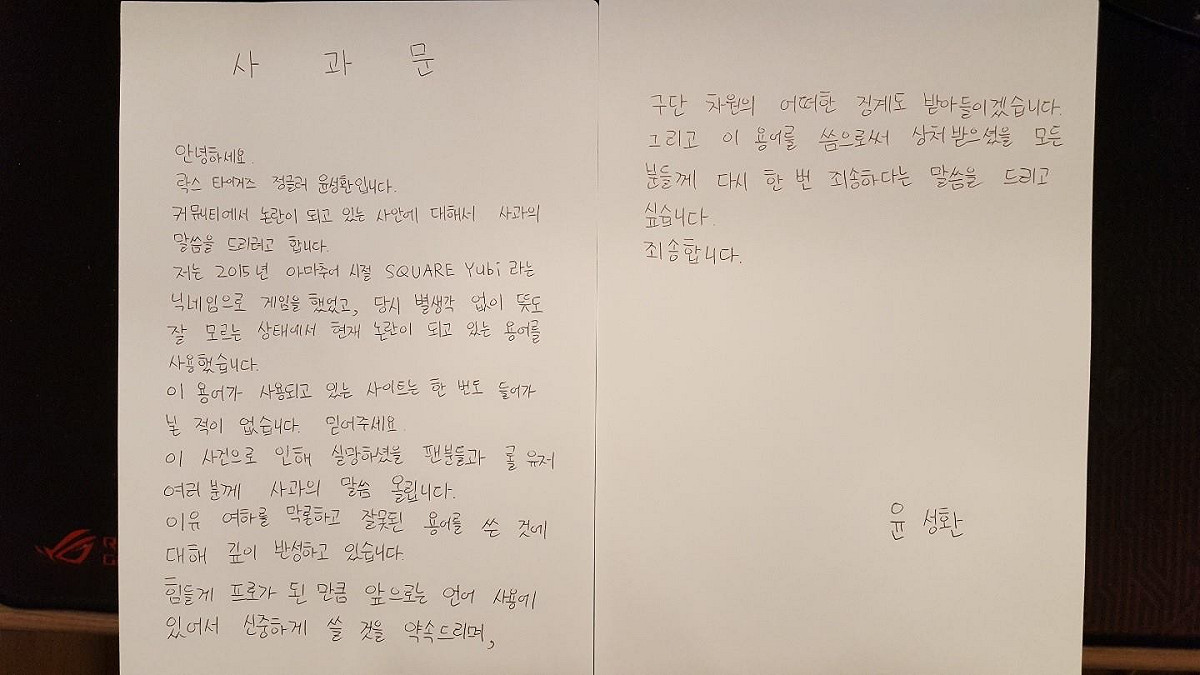 사 과 문
안녕하세요.
락스 타이거즈 정글러 윤성환입니다.
커뮤티에서 논란이 되고 있는 사안에 대해서 사과의
말씀을 드리려고 합니다.
저는 2015년 아마추어 시절 SQUARE Yubi 라는
닉네임으로 게임을 했었고, 당시 별생각 없이 뜻도
잘 모르는 상태에서 현재 논란이 되고 있는 용어를
사용했습니다.
이 용어가 사용되고 있는 사이트는 한 번도 들어가
본 적이 없습니다. 믿어주세요.
이 사건으로 인해 실망하셨을 팬분들과 롤 유저
여러분께 사과의 말씀 올립니다.
이유 여하를 막론하고 잘못된 용어를 쓴 것에
대해 깊이 반성하고 있습니다.
힘들게 프로가 된 만큼 앞으로는 언어 사용에
있어서 신중하게 쓸 것을 약속드리며,
구단 차원의 어떠한 징계도 받아들이겠습니다.
그리고 이 용어를 씀으로써 상처받으셨을 모든
분들께 다시 한 번 죄송하다는 말씀을 드리고
싶습니다.
죄송합니다.
윤 성환